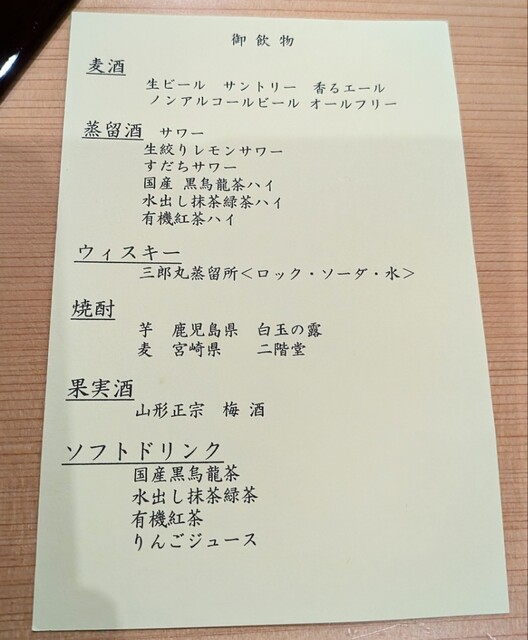 御飲物
麦酒
生ビール サントリー 香るエール
ノンアルコールビール オールフリー
蒸留酒 サワー
生絞りレモンサワー
すだちサワー
国産 黒烏龍茶ハイ
水出し抹茶緑茶ハイ
有機紅茶ハイ
ウィスキー
三郎丸蒸留所<ロック・ソーダ・水>
焼酎
芋 鹿児島県 白玉の露
麦 宮崎県 二階堂
果実酒
山形正宗 梅酒
ソフトドリンク
国産黒烏龍茶
水出し抹茶緑茶
有機紅茶
りんごジュース